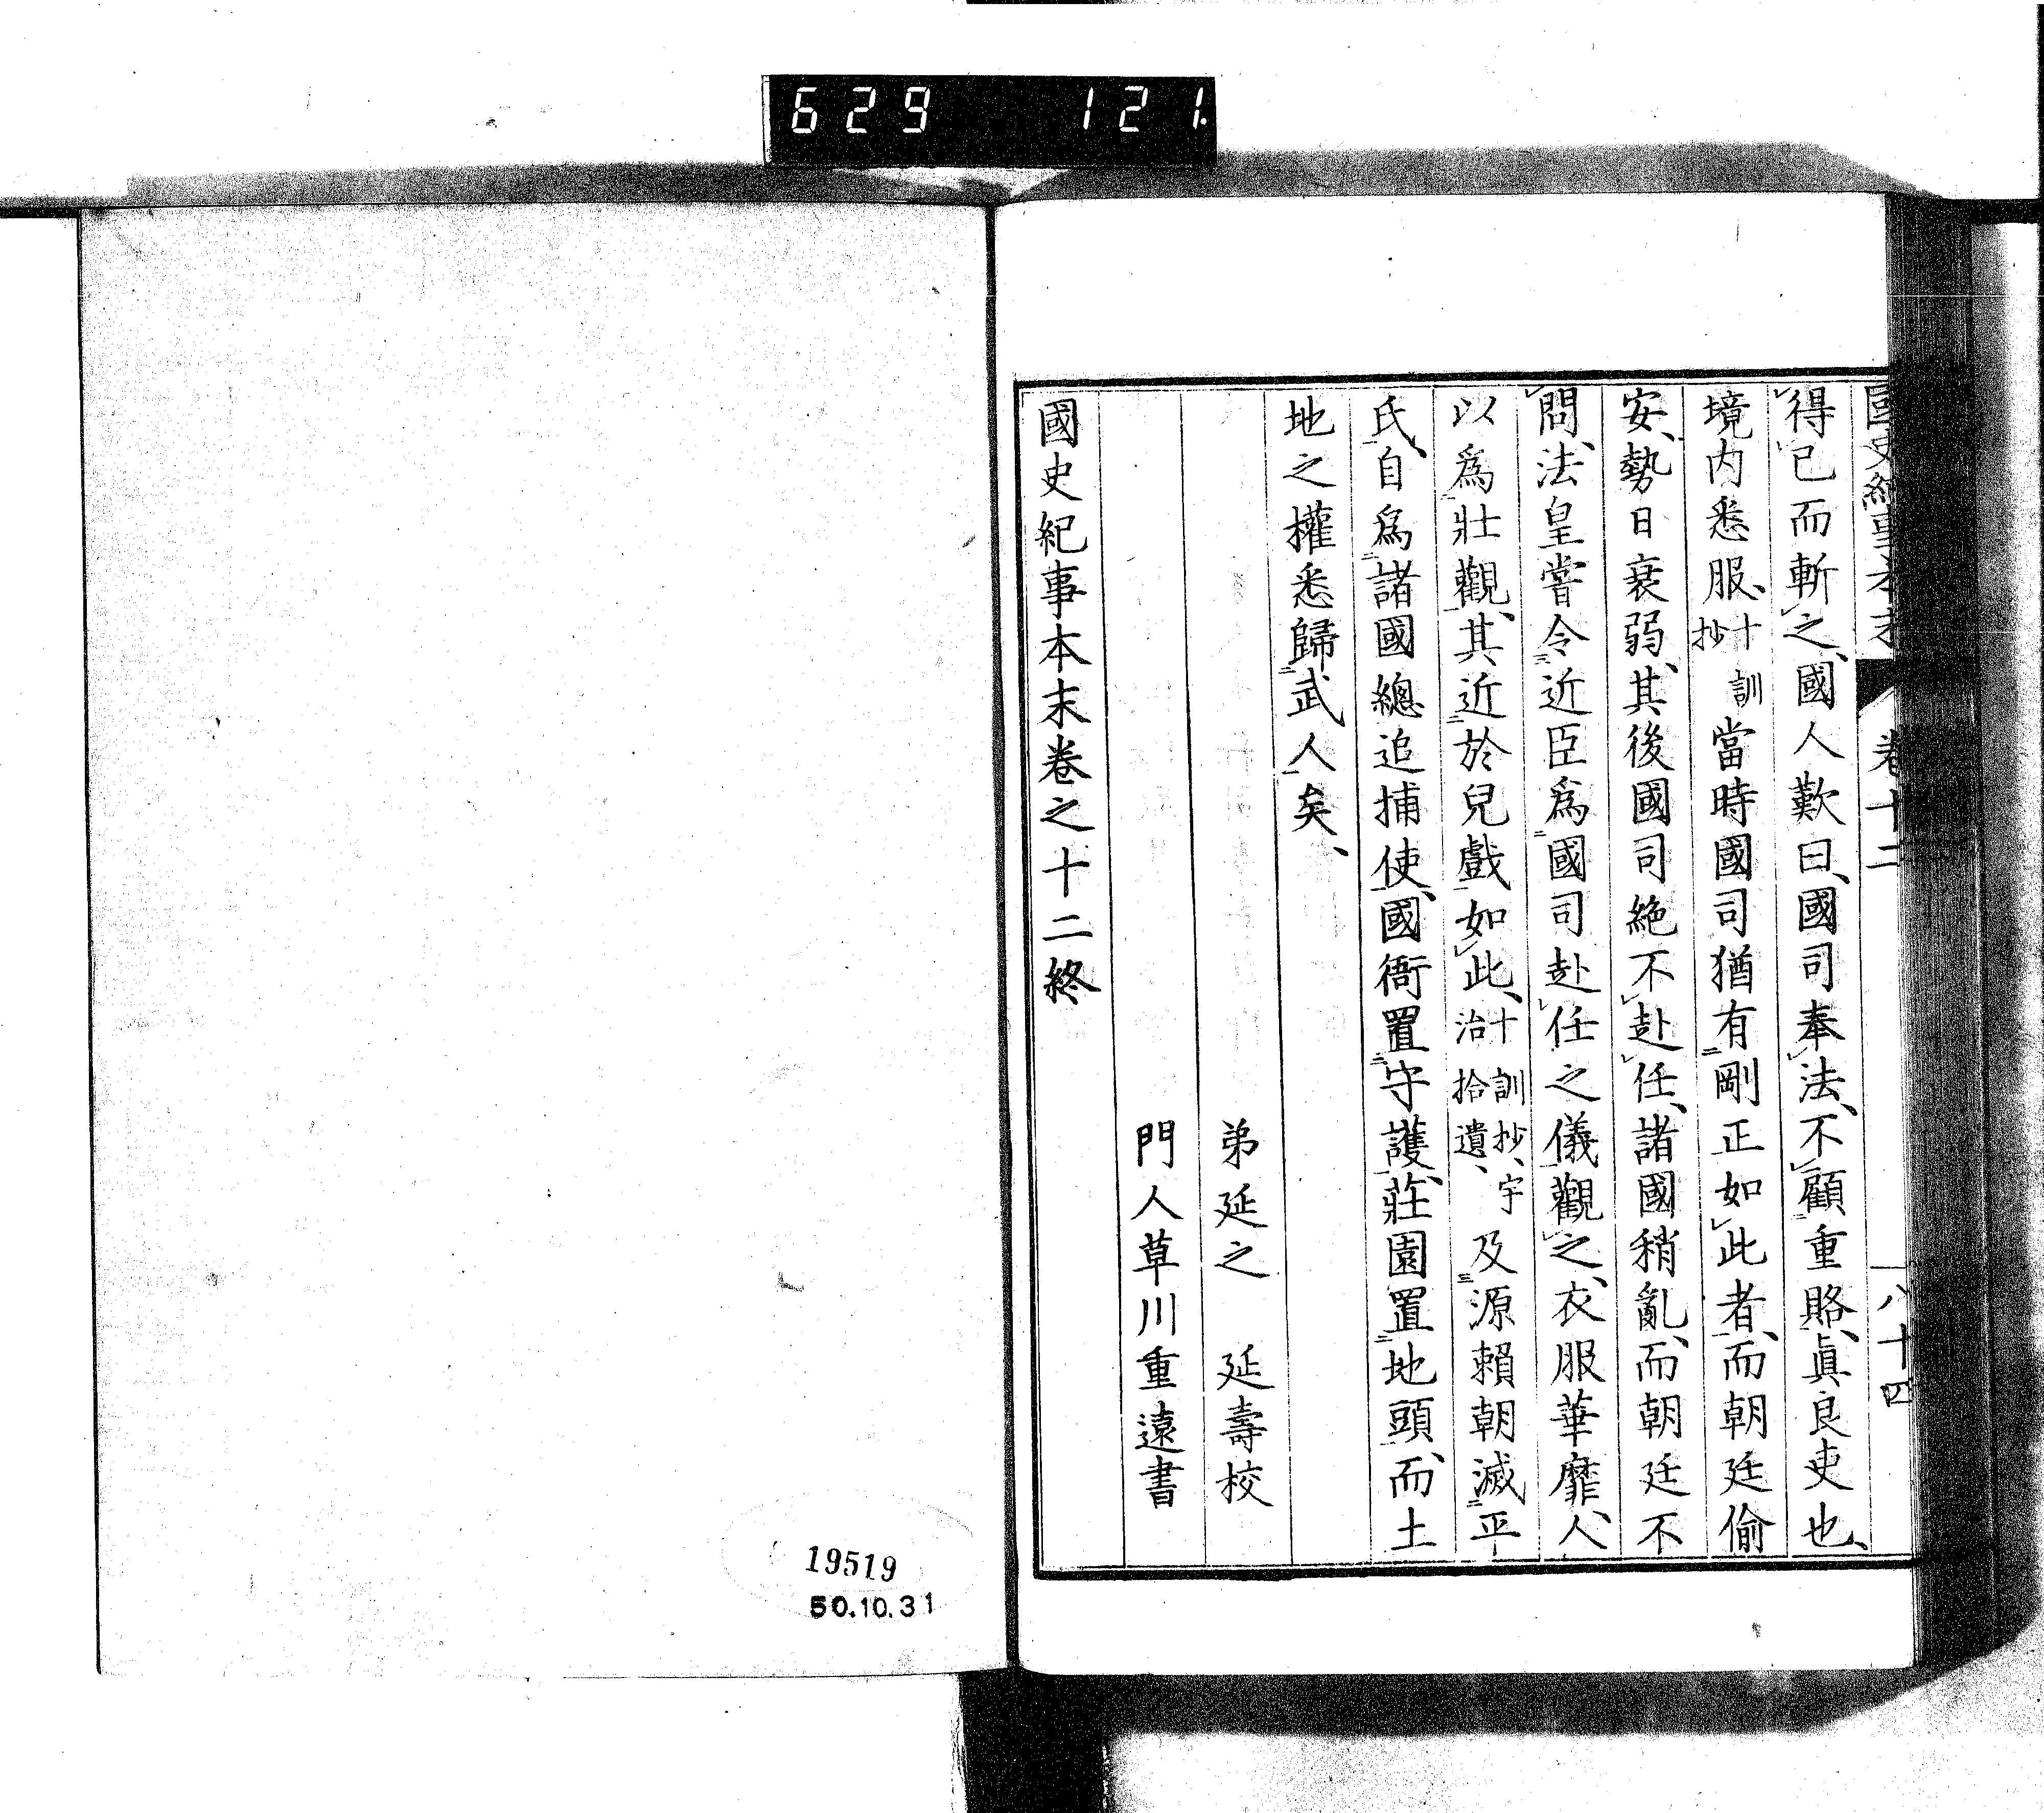 629 121.
國史紀事本末 卷十二 八十四
得已而斬之、國人歎曰、國司奉法、不顧重賂、眞良吏也、
境内悉服、十訓抄當時國司猶有剛正如此者、而朝廷偷
安、勢日衰弱、其後國司絶不赴任、諸國稍亂、而朝廷不
問、法皇嘗令近臣爲國司赴任之儀觀之、衣服華靡、人
以爲壯觀、其近於兒戲如此、十訓抄、宇治拾遺、及源賴朝滅平
氏、自爲諸國總追捕使、國衙置守護、莊園置地頭、而土
地之權悉歸武人矣、
弟延之 延壽校
門人草川重遠書
國史紀事本末卷之十二終
19519
50.10.31